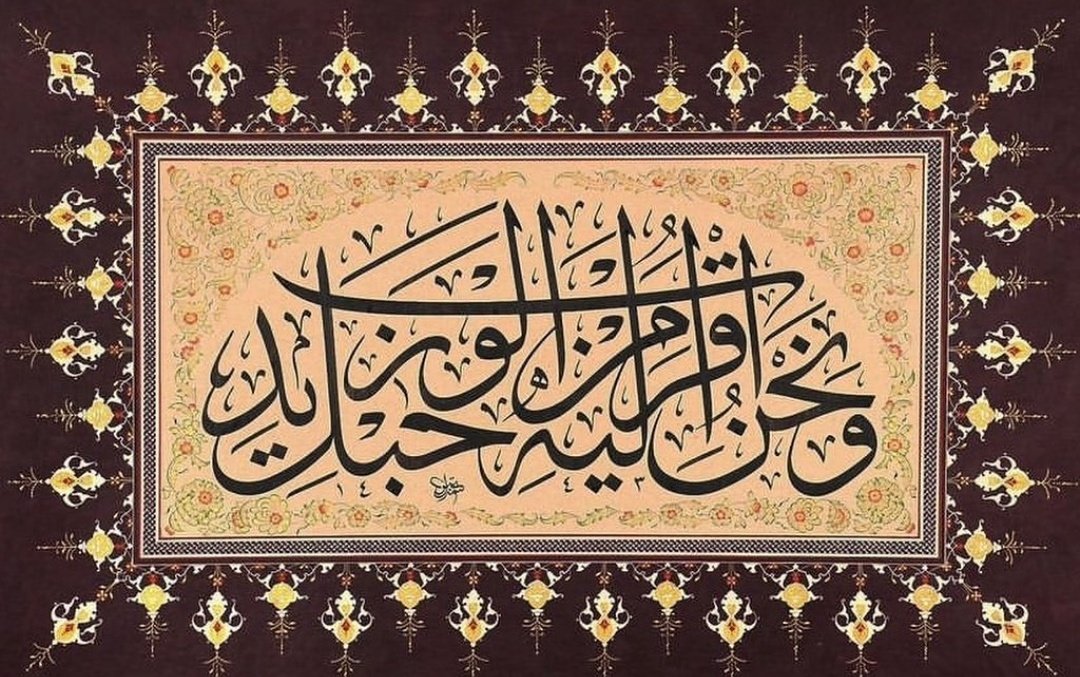 وَنَحْنُ أَقْرَبُ إِلَيْهِ مِنْ حَبْلِ الْوَرِيدِ
١٤٤٣